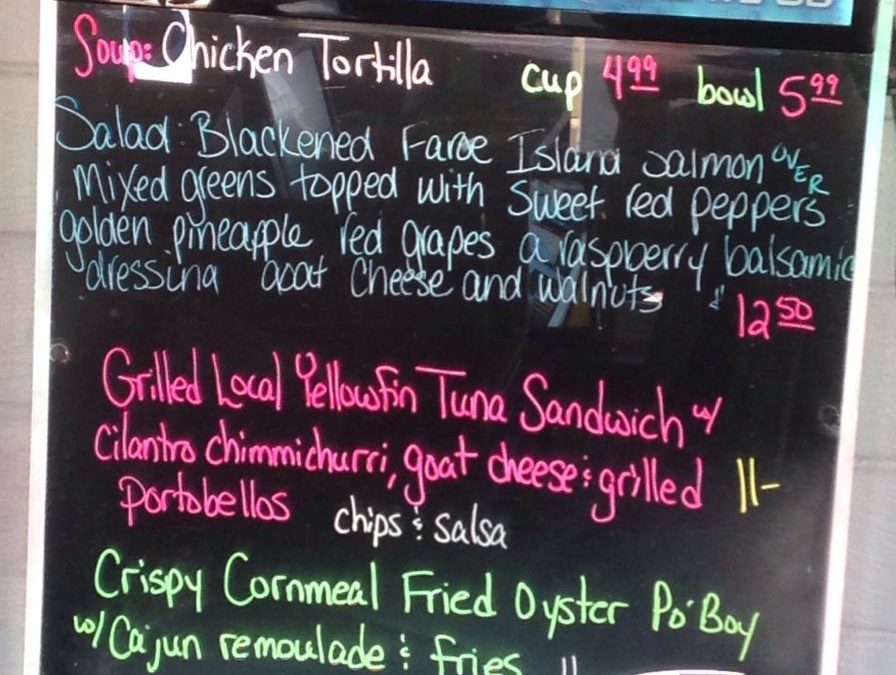 Soup: Chicken Tortilla cup 4.99 bowl 5.99
Salad: Blackened Faroe Island Salmon OVER
Mixed greens topped with Sweet red peppers
golden pineapple red grapes a raspberry balsamic
dressing goat Cheese and walnuts $ 12.50
Grilled Local Yellowfin Tuna Sandwich w/
Cilantro chimmichurri, goat cheese & grilled 11-
Portobellos chips & salsa
Crispy Cornmeal Fried Oyster Po' Boy
w/ Cajun remoulade & fries 11